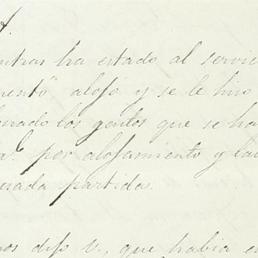 ntras ha estado al servic
mento alojo y se le hizo
 los gastos que se ha
por alojamiento y la
rada partida.
nos dijo V, que habia en